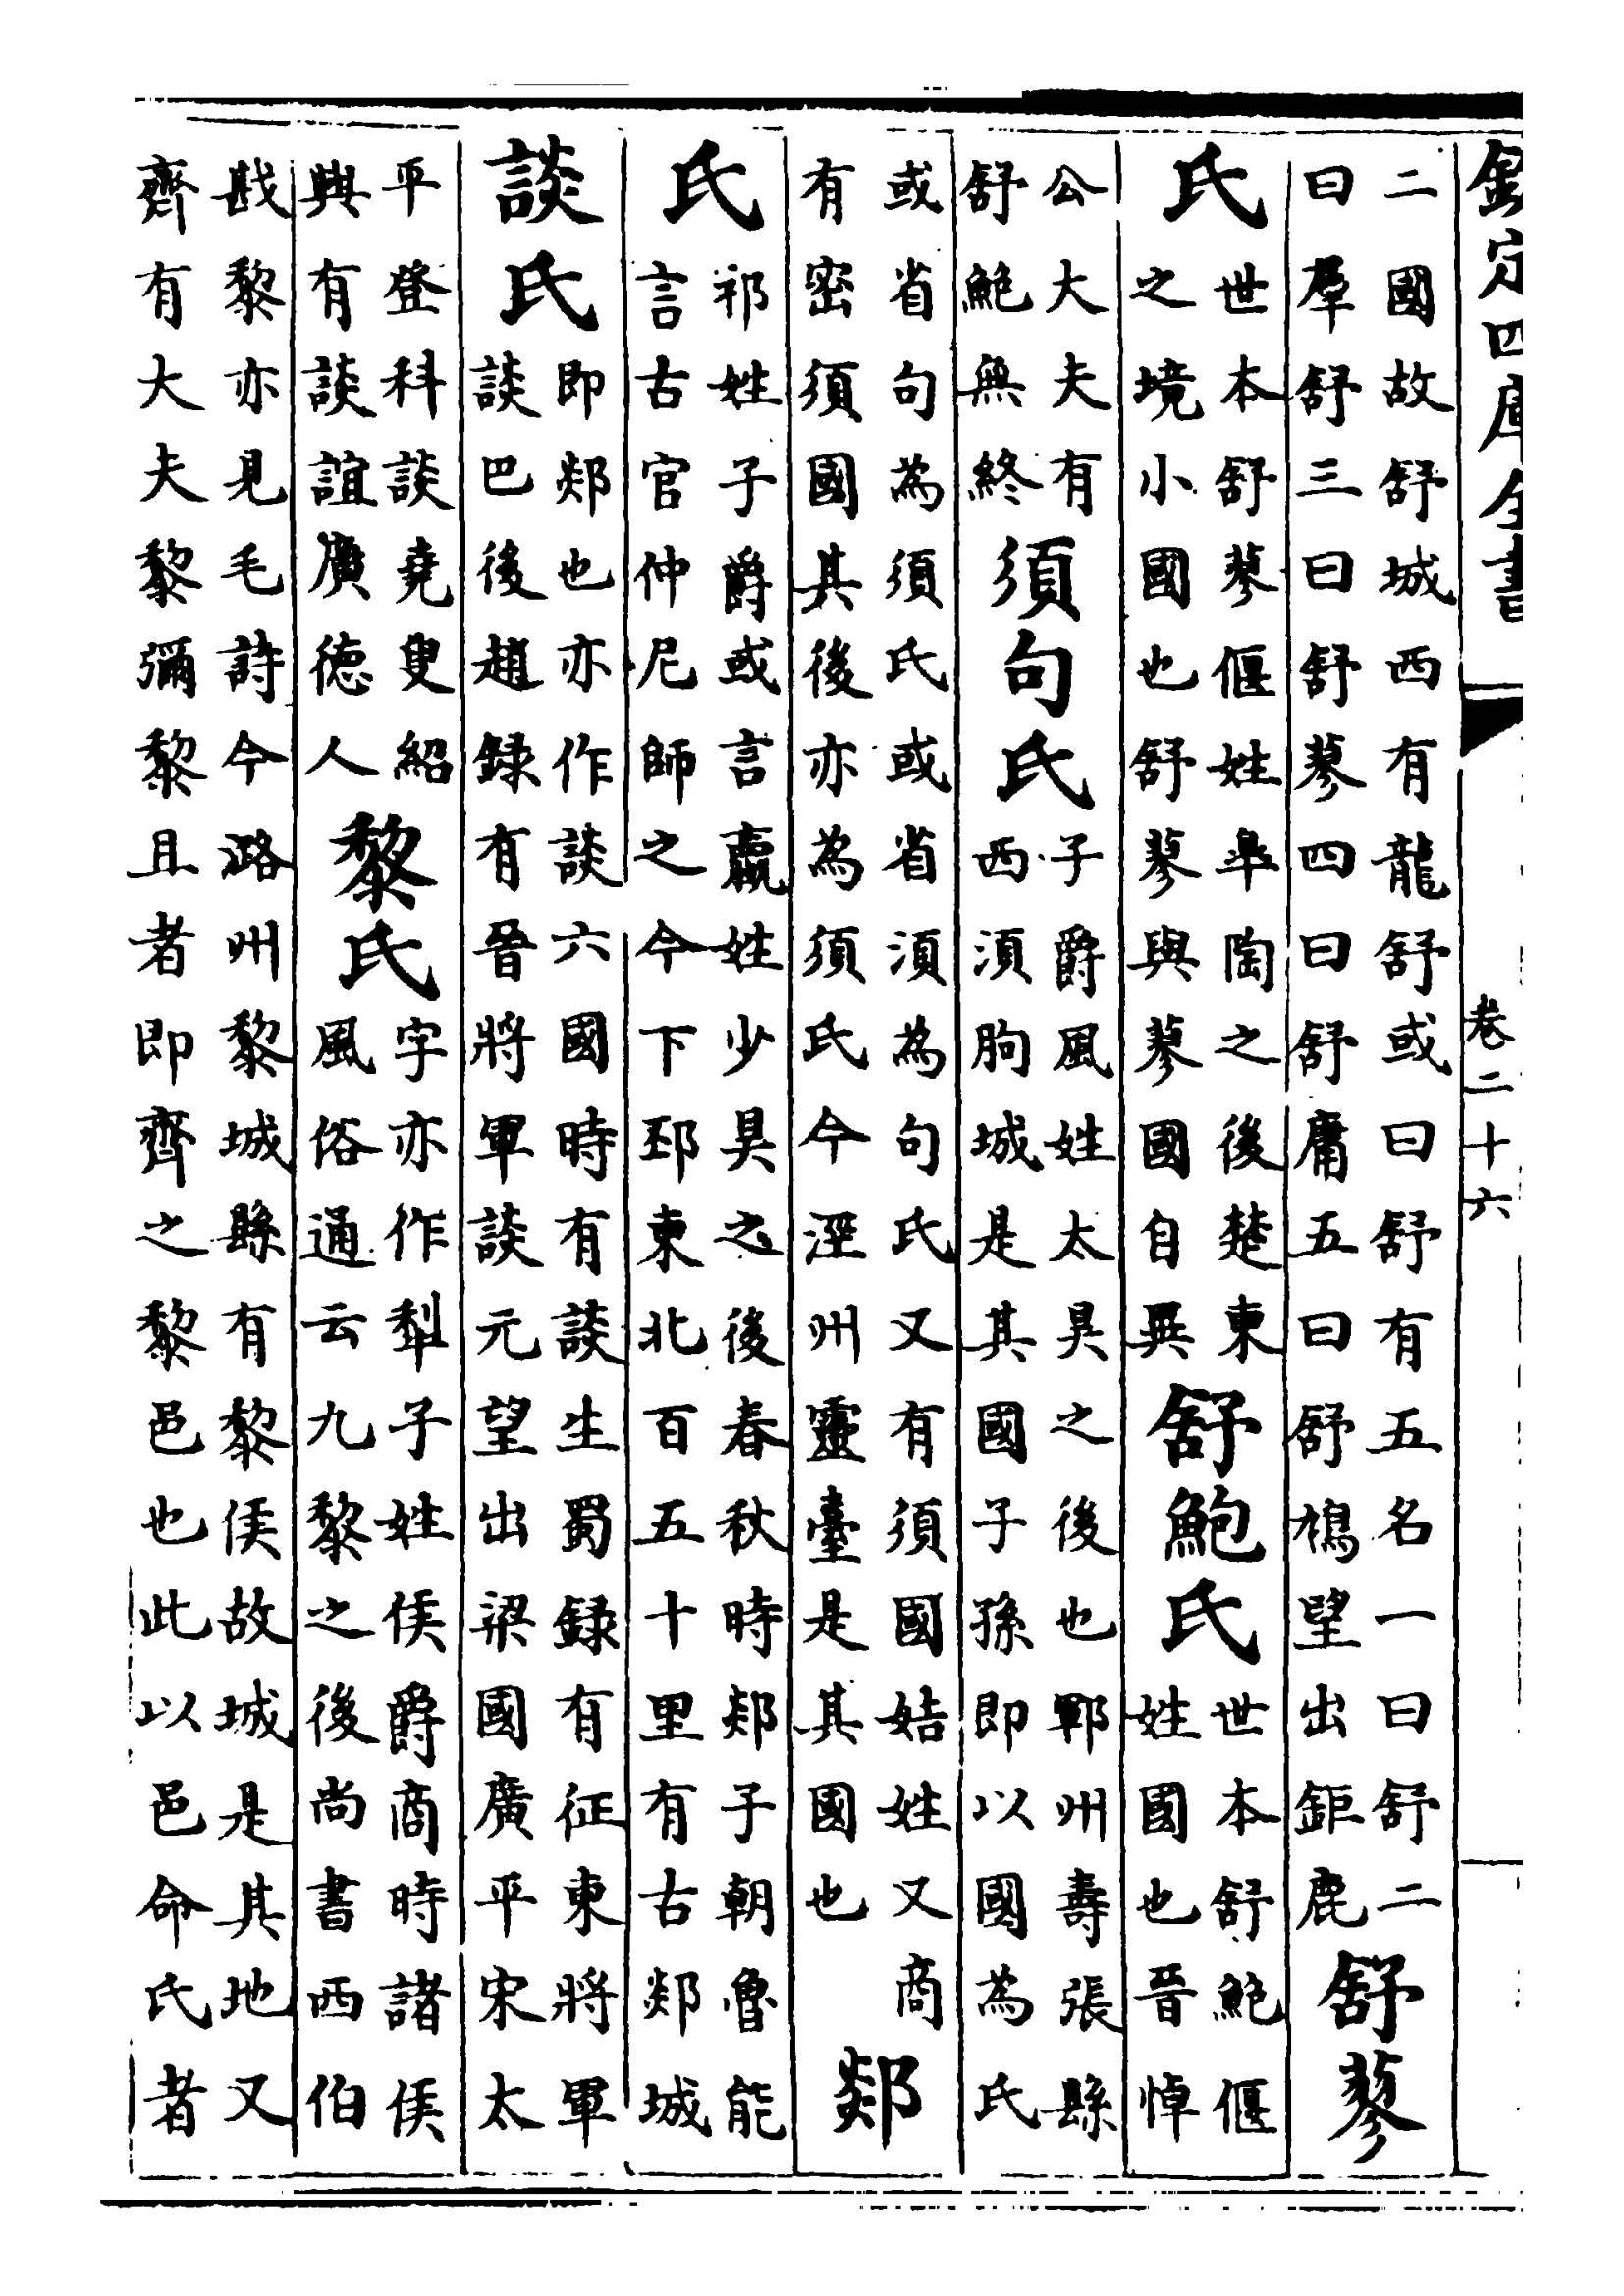 欽定四庫全書
卷二十六
二國故舒城西有龍舒或曰舒有五名一曰舒二
曰羣舒三曰舒蓼四曰舒庸五曰舒鳩望出鉅鹿
舒蓼
氏
世本舒蓼偃姓臯陶之後楚東
之境小國也舒蓼與蓼國自異
舒鮑氏
世本舒鮑偃
姓國也晉悼
公大夫有
舒鮑無終
須句氏
子爵風姓太昊之後也鄆州壽張縣
西湏朐城是其國子孫即以國為氏
或省句為須氏或省湏為句氏又有須國姞姓又商
有密須國其後亦為須氏今涇州靈臺是其國也
郯
氏
祁姓子爵或言嬴姓少昊之後春秋時郯子朝魯能
言古官仲尼師之今下邳東北百五十里有古郯城
談氏
即郯也亦作談六國時有談生蜀録有征東將軍
談巴後趙録有晉將軍談元望出梁國廣平宋太
平登科談堯叟紹
興有談誼廣德人
黎氏
字亦作犁子姓侯爵商時諸侯
風俗通云九黎之後尚書西伯
戡黎亦見毛詩今潞州黎城縣有黎侯故城是其地又
齊有大夫黎彌黎且者即齊之黎邑也此以邑命氏者